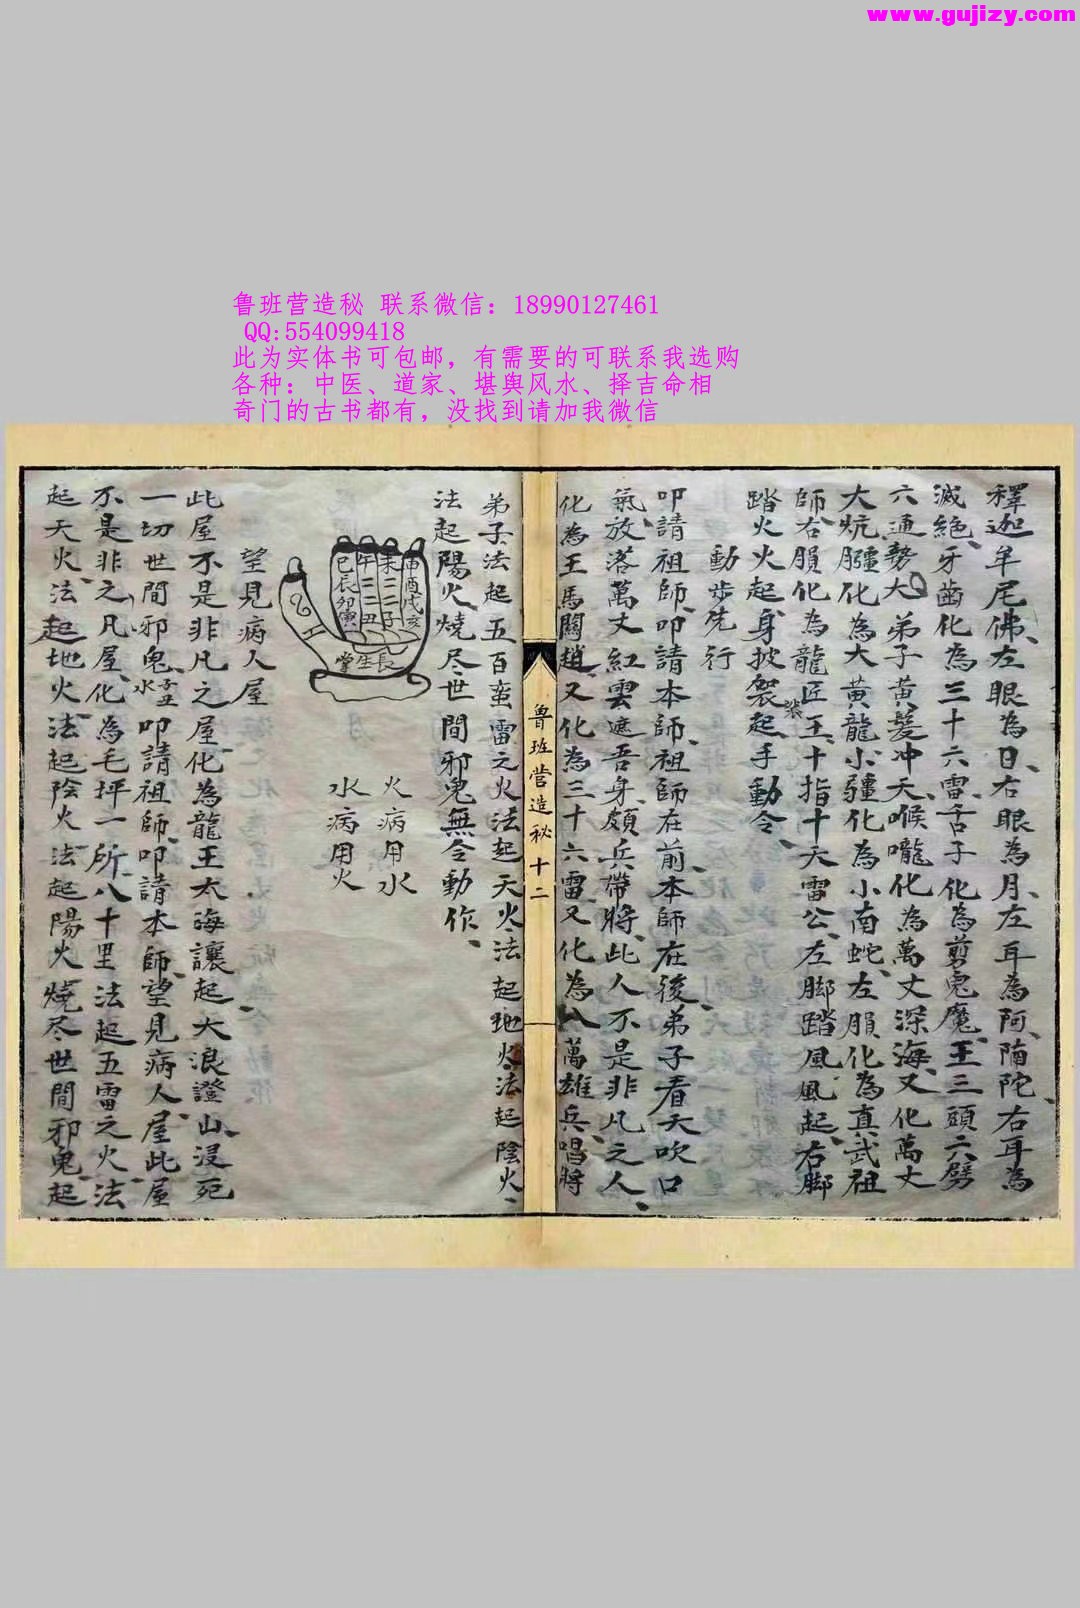 www.gujizy.com
鲁班营造秘 联系微信：18990127461
QQ:554099418
此为实体书可包邮，有需要的可联系我选购
各种：中医、道家、堪舆风水、择吉命相
奇门的古书都有，没找到请加我微信
釋迦牟尼佛、左眼為日、右眼為月、左耳為阿陏陀、右耳為
滅絕、牙齒化為三十六雷、舌子化為剪鬼魔王三頭六劈
六通勢大、弟子黃髮冲天、喉嚨化為萬丈深海、又化萬丈
大炕、膙化為大黃龍、小疆化為小南蛇、左腵化為真武祖
師、右腵化為龍匠王、十指十天雷公、左脚踏風風起、右脚
踏火火起、身披袈裟起手動令、
動步先行
叩請祖師、叩請本師、祖師在前、本師在後、弟子看天吹口
氣、放落萬丈紅雲遮吾身、頗兵帶將、此人不是非凡之人、
化為王馬關趙、又化為三十六雷、又化為八萬雄兵、唱將
魯班營造秘 十二
弟子法起五百蛮雷之火、法起天火、法起地火、法起陰火、
法起陽火、燒尽世間邪鬼無令動作、
申酉戌亥
未二二子
午二二丑
巳辰卯寅
長生掌
火病用水
水病用火
望見病人屋
此屋不是非凡之屋、化為龍王太海讓起大浪證山、浸死
一切世間邪鬼、水 叩請祖師、叩請本師、望見病人屋、此屋
不是非之凡屋、化為毛坪一所、八十里法起五雷之火、法
起天火、法起地火、法起陰火、法起陽火、燒尽世間邪鬼、起